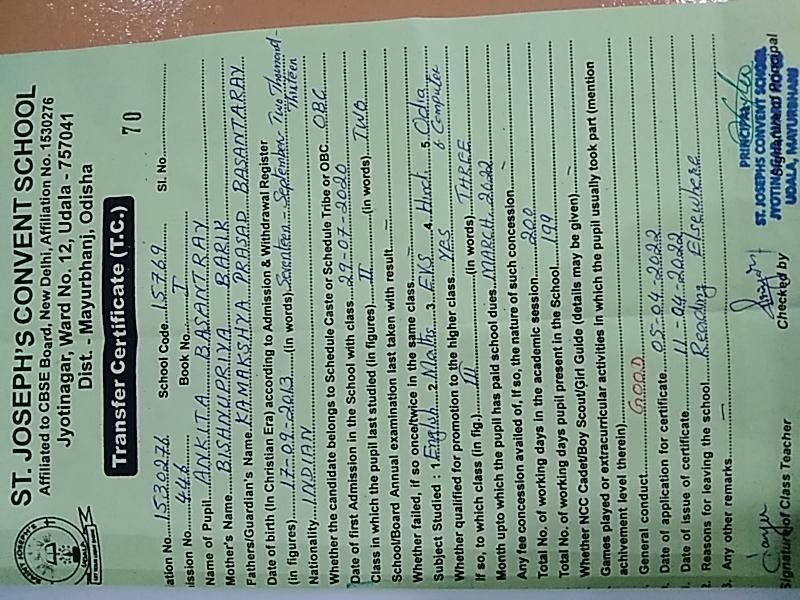 ST. JOSEPH'S CONVENT SCHOOL
Affiliated to CBSE Board, New Delhi, Affiliation No. 1530276
Jyotinagar, Ward No. 12, Udala - 757041
Dist. - Mayurbhanj, Odisha
Transfer Certificate (T.C.)
70
ation No. 1530276 School Code. 15769 Sl. No.
ission No. 446 Book No. I
Name of Pupil ANKITA BASANTRAY
Mother's Name BISHNUPRIYA BARIK
Fathers/Guardian's Name. KAMAKSHYA PRASAD BASANTARAY
Date of birth (In Christian Era) according to Admission & Withdrawal Register
(in figures) 17-09-2013 (in words) Seventeen - September - Two Thousand - Thirteen
Nationality INDIAN
Whether the candidate belongs to Schedule Caste or Schedule Tribe or OBC. OBC
Date of first Admission in the School with class. 29-07-2020
Class in which the pupil last studied (in figures) II (in words) TWO
School/Board Annual examination last taken with result –
Whether failed, if so once/twice in the same class –
Subject Studied : 1. English 2. Maths 3. EVS 4. Hindi 5. Odia 6 Computer
Whether qualified for promotion to the higher class YES
If so, to which class (in fig.) III (in words) THREE
Month upto which the pupil has paid school dues. MARCH, 2022
Any fee concession availed of, If so, the nature of such concession
Total No. of working days in the academic session 200
Total No. of working days pupil present in the School. 199
Whether NCC Cadet/Boy Scout/Girl Guide (details may be given) –
Games played or extracurricular activities in which the pupil usually took part (mention
achievement level therein).
General conduct GOOD
Date of application for certificate. 05-04-2022
Date of issue of certificate. 11-04-2022
2. Reasons for leaving the school. Reading Elsewhere
3. Any other remarks –
Signature of Class Teacher
Checked by
PRINCIPAL
ST. JOSEPHS CONVENT SCHOOL
JYOTINAGAR, WARD NO-12
UDALA, MAYURBHANJ